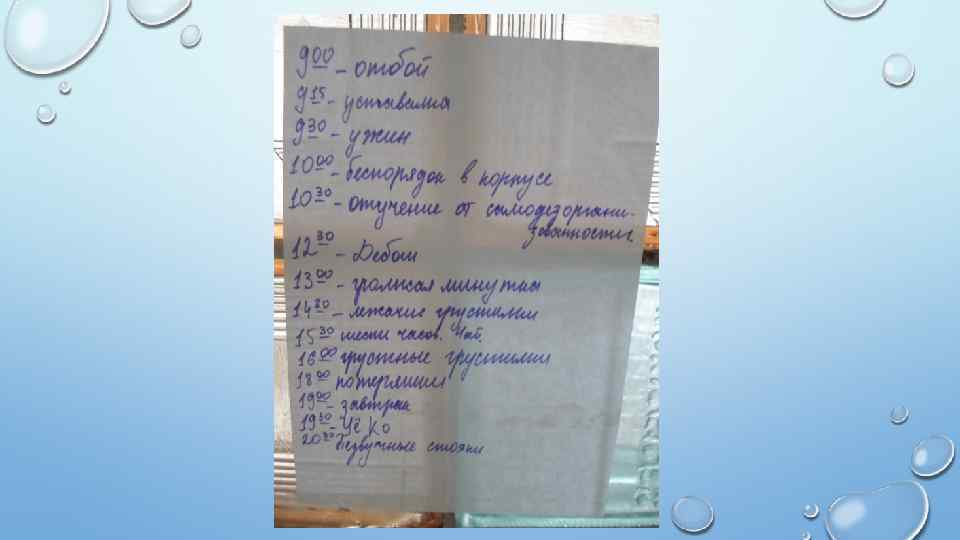 9 00 - отбой
9 15 - уставалка
9 30 - ужин
10 00 - беспорядок в корпусе
10 30 - отучение от самодезоргани-
зованности.
12 30 - Дебош
13 00 - громкая минутка
14 30 - лежачие грустилки
15 30 шести часов. Чай.
16 00 грустные грустилки
18 00 потерялки
19 00 - завтрак
19 30 - Че Ко
20 30 беззвучные стояки